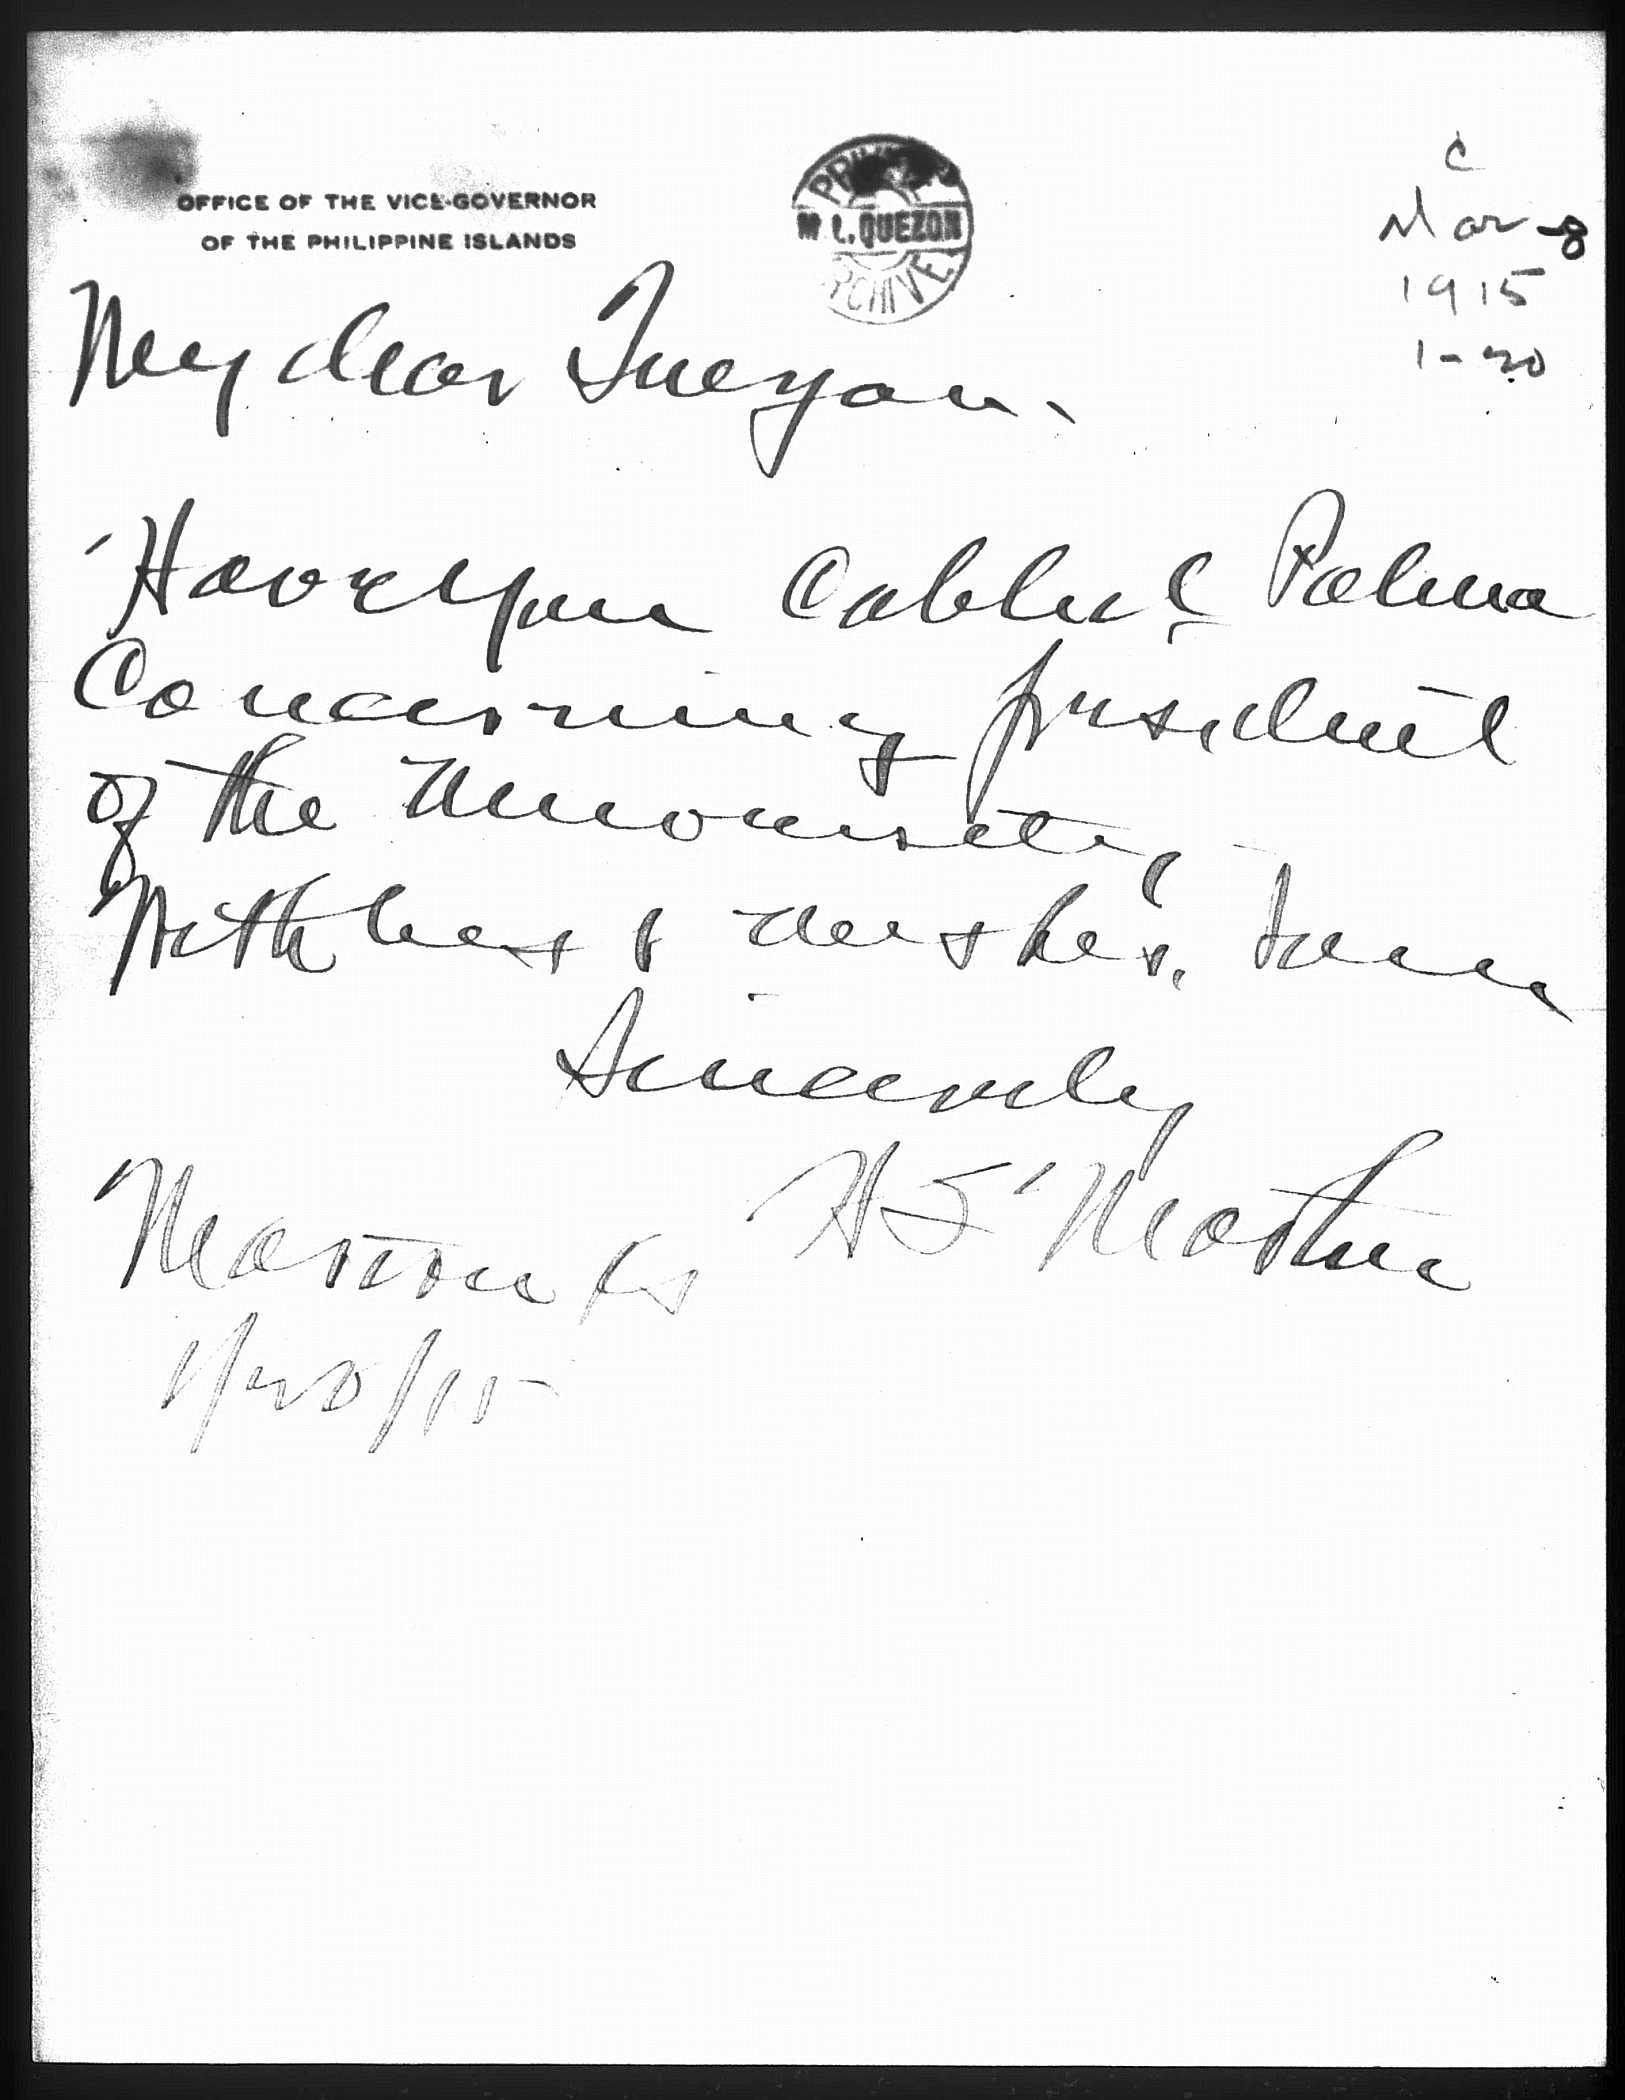 OFFICE OF THE VICE-GOVERNOR
OF THE PHILIPPINE ISLANDS
PRIVATE
M. L. QUEZON
ARCHIVE
C
Mar-8
1915
1-20
My dear Quezon.
Have you cabled Palma
Concerning president
of the University,
With best wishes, I am,
Sincerely
H S Martin
Marion Ks
1/20/15